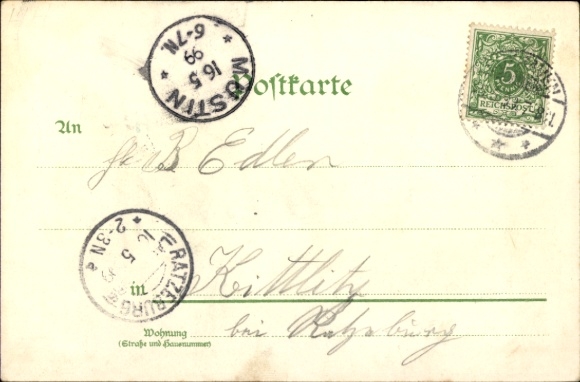 * MUSTIN *
16 5
99
6-7N.
Postkarte
5
PFENNIG
REICHSPOST
An
B Edler
RATZEBURG
16 5
2-3N
in Kittlitz
bei Ratzeburg
Wohnung
(Straße und Hausnummer)